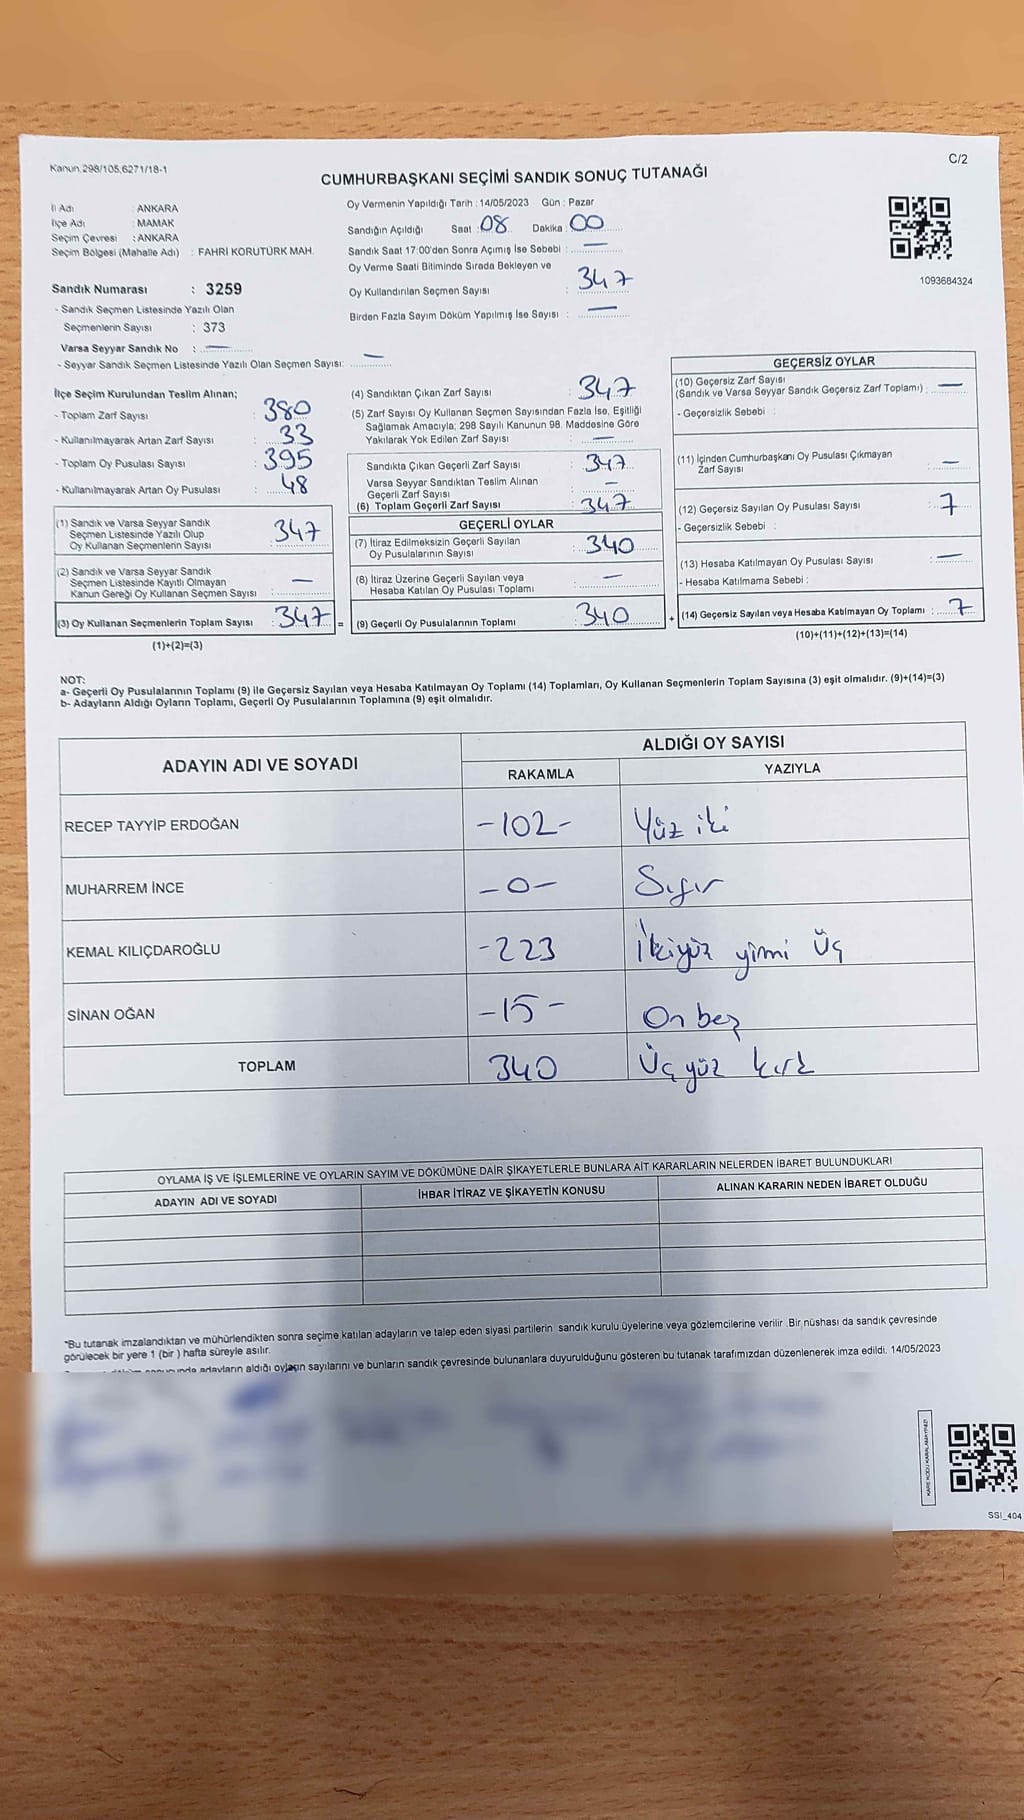 Kanun.298/105,6271/18-1
C/2
CUMHURBAŞKANI SEÇİMİ SANDIK SONUÇ TUTANAĞI
İl Adı : ANKARA
İlçe Adı : MAMAK
Seçim Çevresi : ANKARA
Seçim Bölgesi (Mahalle Adı) : FAHRİ KORUTÜRK MAH.
Sandık Numarası : 3259
- Sandık Seçmen Listesinde Yazılı Olan
Seçmenlerin Sayısı : 373
Varsa Seyyar Sandık No : —
- Seyyar Sandık Seçmen Listesinde Yazılı Olan Seçmen Sayısı: —
Oy Vermenin Yapıldığı Tarih : 14/05/2023 Gün : Pazar
Sandığın Açıldığı Saat : 08 Dakika : 00
Sandık Saat 17:00'den Sonra Açımış İse Sebebi : —
Oy Verme Saati Bitiminde Sırada Bekleyen ve
Oy Kullandırılan Seçmen Sayısı : 347
Birden Fazla Sayım Döküm Yapılmış İse Sayısı : —
1093684324
İlçe Seçim Kurulundan Teslim Alınan;
- Toplam Zarf Sayısı : 380
- Kullanılmayarak Artan Zarf Sayısı : 33
- Toplam Oy Pusulası Sayısı : 395
- Kullanılmayarak Artan Oy Pusulası : 48
(1) Sandık ve Varsa Seyyar Sandık
Seçmen Listesinde Yazılı Olup
Oy Kullanan Seçmenlerin Sayısı : 347
(2) Sandık ve Varsa Seyyar Sandık
Seçmen Listesinde Kayıtlı Olmayan
Kanun Gereği Oy Kullanan Seçmen Sayısı : —
(3) Oy Kullanan Seçmenlerin Toplam Sayısı : 347 =
(1)+(2)=(3)
(4) Sandıktan Çıkan Zarf Sayısı : 347
(5) Zarf Sayısı Oy Kullanan Seçmen Sayısından Fazla İse, Eşitliği
Sağlamak Amacıyla; 298 Sayılı Kanunun 98. Maddesine Göre
Yakılarak Yok Edilen Zarf Sayısı : —
Sandıkta Çıkan Geçerli Zarf Sayısı : 347
Varsa Seyyar Sandıktan Teslim Alınan
Geçerli Zarf Sayısı : —
(6) Toplam Geçerli Zarf Sayısı : 347
GEÇERLİ OYLAR
(7) İtiraz Edilmeksizin Geçerli Sayılan
Oy Pusulalarının Sayısı : 340
(8) İtiraz Üzerine Geçerli Sayılan veya
Hesaba Katılan Oy Pusulası Toplamı : —
(9) Geçerli Oy Pusulalarının Toplamı : 340 +
GEÇERSİZ OYLAR
(10) Geçersiz Zarf Sayısı
(Sandık ve Varsa Seyyar Sandık Geçersiz Zarf Toplamı) : —
- Geçersizlik Sebebi :
(11) İçinden Cumhurbaşkanı Oy Pusulası Çıkmayan
Zarf Sayısı : —
(12) Geçersiz Sayılan Oy Pusulası Sayısı : 7
- Geçersizlik Sebebi :
(13) Hesaba Katılmayan Oy Pusulası Sayısı : —
- Hesaba Katılmama Sebebi :
(14) Geçersiz Sayılan veya Hesaba Katılmayan Oy Toplamı : 7
(10)+(11)+(12)+(13)=(14)
NOT:
a- Geçerli Oy Pusulalarının Toplamı (9) ile Geçersiz Sayılan veya Hesaba Katılmayan Oy Toplamı (14) Toplamları, Oy Kullanan Seçmenlerin Toplam Sayısına (3) eşit olmalıdır. (9)+(14)=(3)
b- Adayların Aldığı Oyların Toplamı, Geçerli Oy Pusulalarının Toplamına (9) eşit olmalıdır.
ADAYIN ADI VE SOYADI
ALDIĞI OY SAYISI
RAKAMLA YAZIYLA
RECEP TAYYİP ERDOĞAN -102- Yüz iki
MUHARREM İNCE -0- Sıfır
KEMAL KILIÇDAROĞLU -223 İkiyüz yirmi Üç
SİNAN OĞAN -15- On beş
TOPLAM 340 Üç yüz kırk
OYLAMA İŞ VE İŞLEMLERİNE VE OYLARIN SAYIM VE DÖKÜMÜNE DAİR ŞİKAYETLERLE BUNLARA AİT KARARLARIN NELERDEN İBARET BULUNDUKLARI
ADAYIN ADI VE SOYADI İHBAR İTİRAZ VE ŞİKAYETİN KONUSU ALINAN KARARIN NEDEN İBARET OLDUĞU
*Bu tutanak imzalandıktan ve mühürlendikten sonra seçime katılan adayların ve talep eden siyasi partilerin sandık kurulu üyelerine veya gözlemcilerine verilir .Bir nüshası da sandık çevresinde
görülecek bir yere 1 (bir ) hafta süreyle asılır.
adayların aldığı oyların sayılarını ve bunların sandık çevresinde bulunanlara duyurulduğunu gösteren bu tutanak tarafımızdan düzenlenerek imza edildi. 14/05/2023
KARE KODU KARALAMAYINIZ!
SSI_404